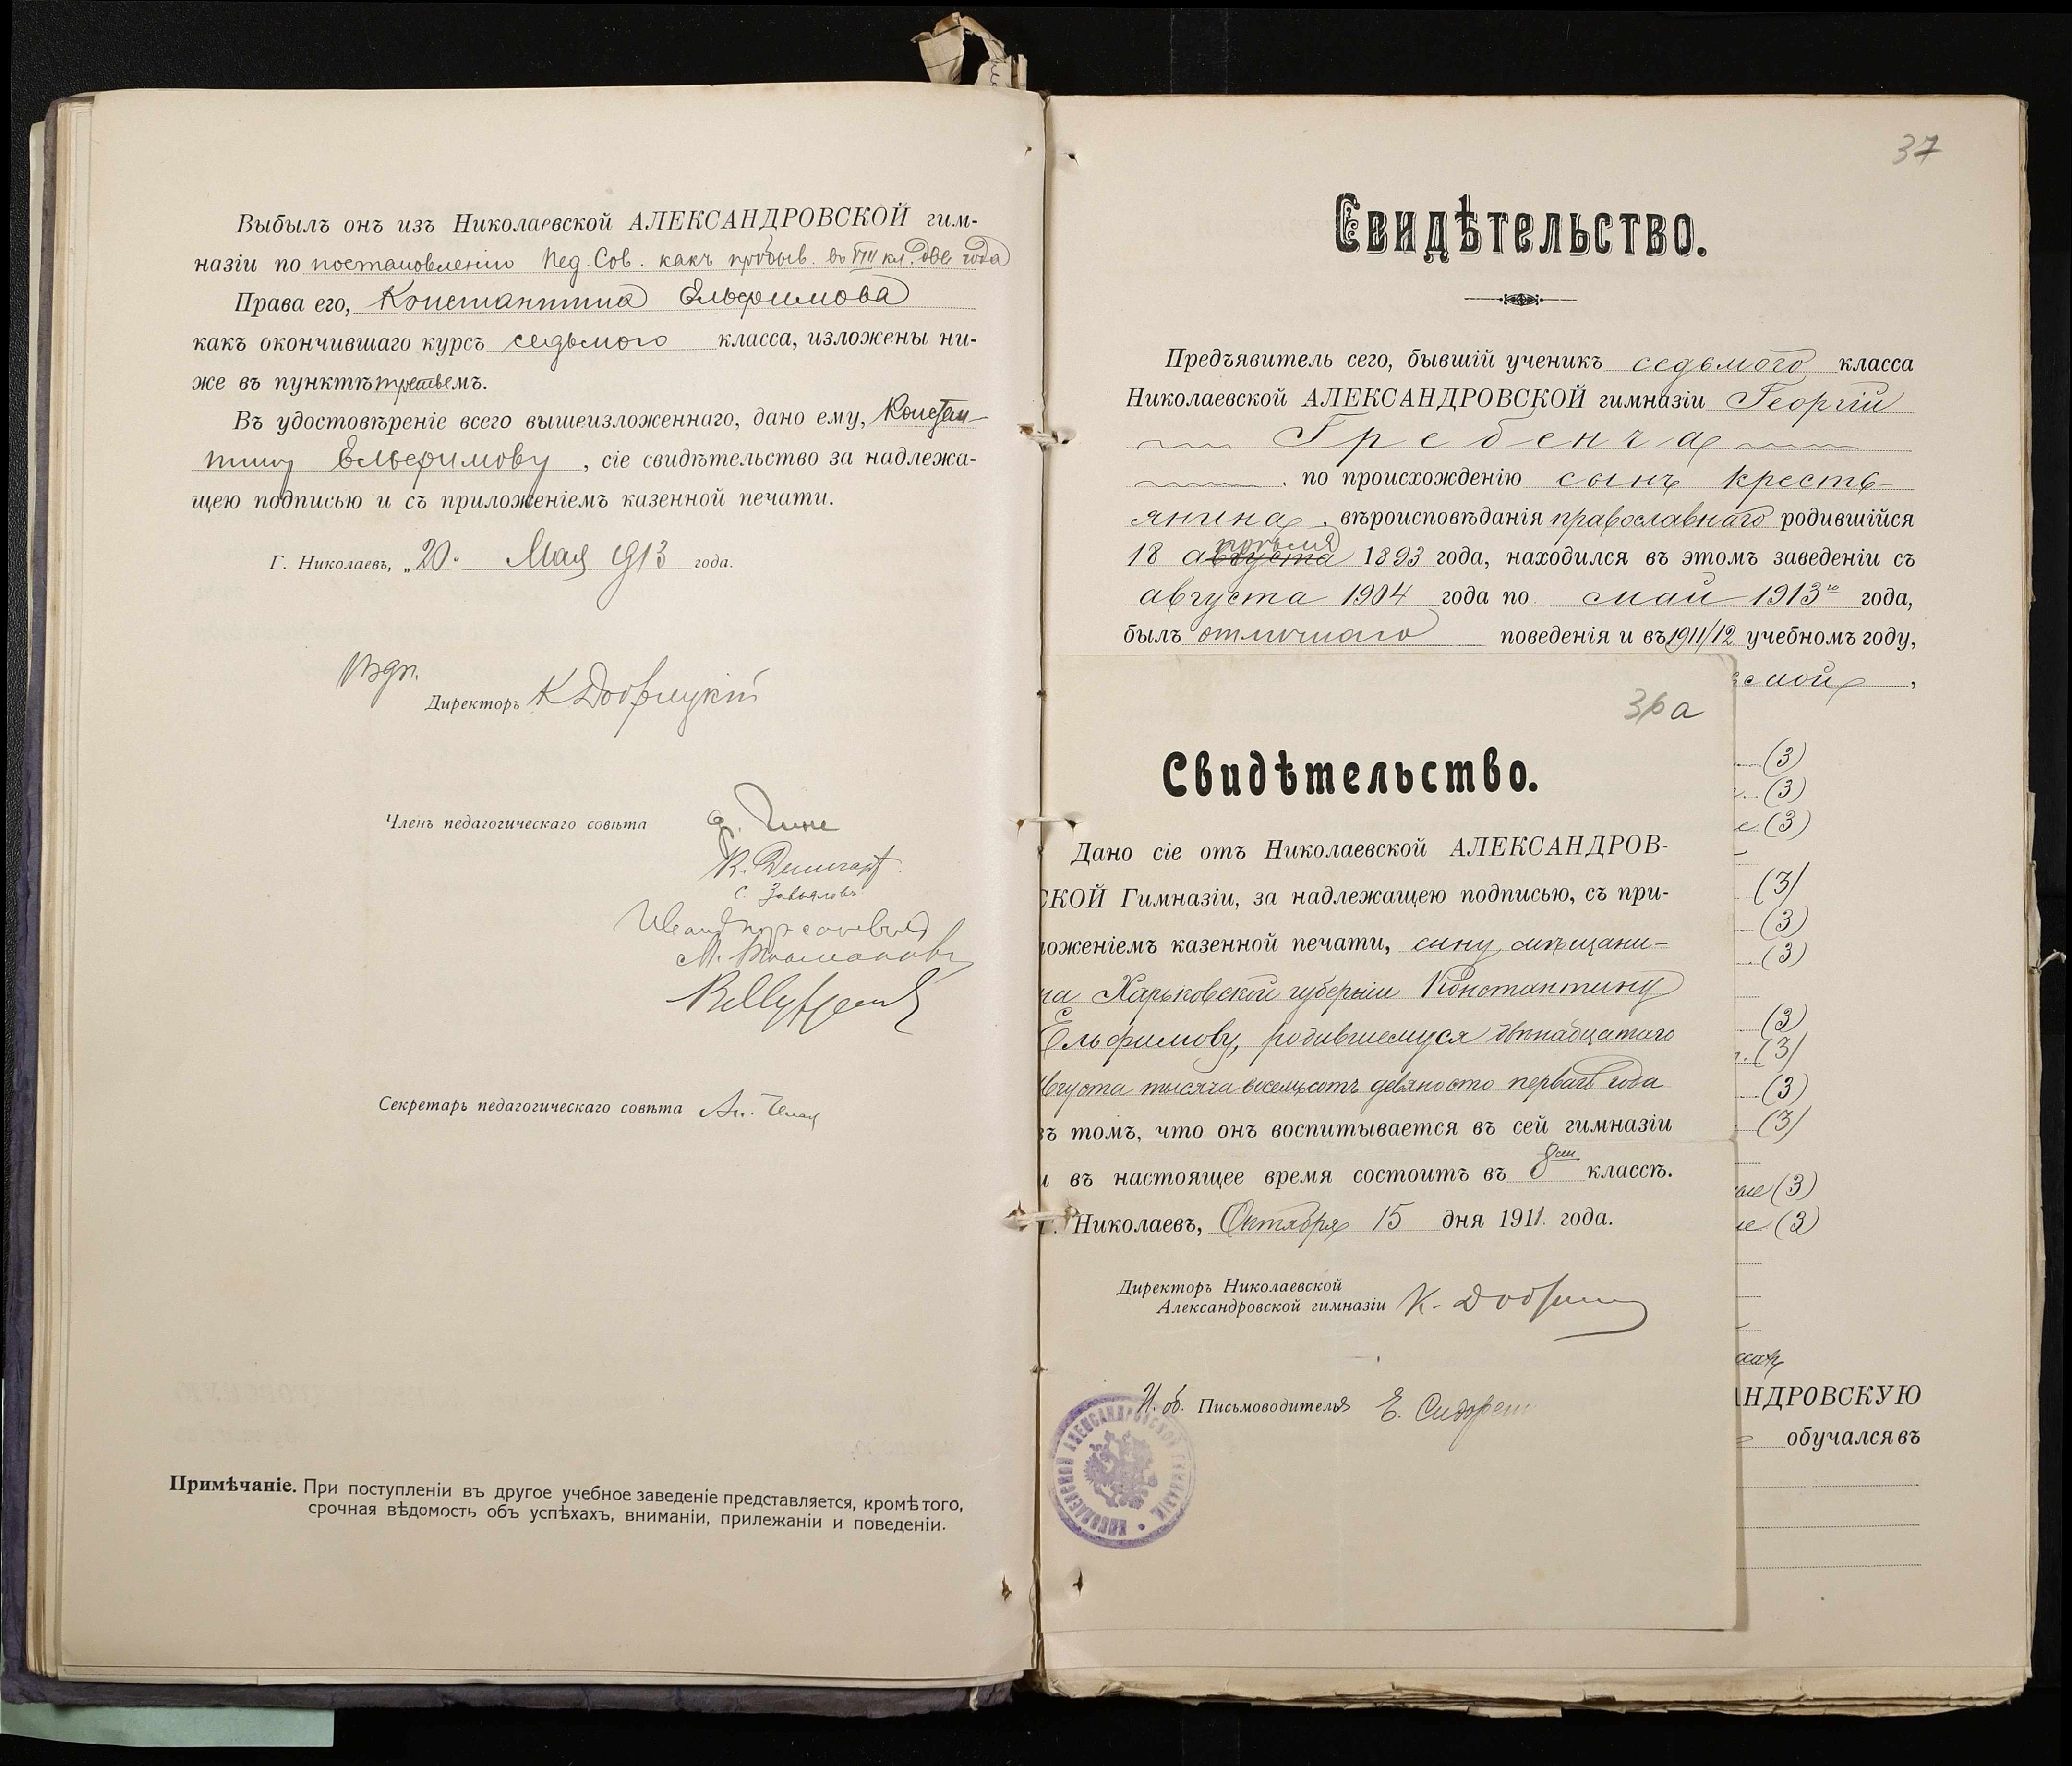 Выбылъ онъ изъ Николаевской АЛЕКСАНДРОВСКОЙ гим-
назіи по постановленію Пед. Сов. какъ пробыв. въ VIII кл. два года
Права его, Константина Ельфимова
какъ окончившаго курсъ седьмого класса, изложены ни-
же въ пунктѣ третьемъ.
Въ удостовѣреніе всего вышеизложеннаго, дано ему, Констан-
тину Ельфимову, сіе свидѣтельство за надлежа-
щею подписью и съ приложеніемъ казенной печати.
Г. Николаевъ, „20" Мая 1913 года.
Директоръ К Добрицкій
Членъ педагогическаго совѣта
С. Завьяловъ
Секретарь педагогическаго совѣта
Примѣчаніе. При поступленіи въ другое учебное заведеніе представляется, кромѣ того,
срочная вѣдомость объ успѣхахъ, вниманіи, прилежаніи и поведеніи.
37
Свидѣтельство.
Предъявитель сего, бывшій ученикъ седьмого класса
Николаевской АЛЕКСАНДРОВСКОЙ гимназіи Георгій
Гребенча
по происхожденію сынъ кресть-
янина, вѣроисповѣданія православнаго родившійся
18 августа апрѣля 1893 года, находился въ этомъ заведеніи съ
августа 1904 года по май 1913го года,
былъ отличнаго поведенія и въ 1911/12 учебномъ году,
36а
Свидѣтельство.
Дано сіе отъ Николаевской АЛЕКСАНДРОВ-
СКОЙ Гимназіи, за надлежащею подписью, съ при-
ложеніемъ казенной печати, сыну мѣщани-
на Харьковской губерніи Константину
Ельфимову, родившемуся двѣнадцатаго
Августа тысяча восемьсотъ девяносто перваго года
въ томъ, что онъ воспитывается въ сей гимназіи
и въ настоящее время состоитъ въ 8ом классѣ.
Г. Николаевъ, Октября 15 дня 1911. года.
Директоръ Николаевской
Александровской гимназіи К. Добриц
И. об. Письмоводителя Е. Сидорен
(3)
(3)
(3)
(3)
(3)
(3)
(3)
(3)
(3)
(3)
(3)
(3)
АНДРОВСКУЮ
обучался въ